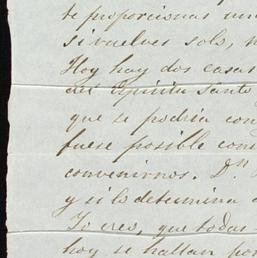 te proporcionas un
si vuelves solo,
Hoy hay dos casas
del Espiritu Santo
que se podria con
fuese posible con
convenirnos. Dn
y si lo determina
Yo creo, que todas
hoy se hallan por